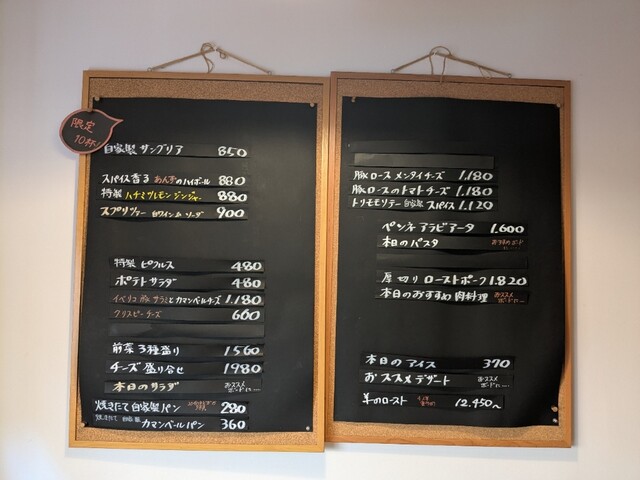 限定
10杯
自家製 サングリア 850
スパイス香る あんずのハイボール 880
特製 ハチミツレモン ジンジャー 880
スプリッツァー 白ワイン&ソーダ 900
特製 ピクルス 480
ポテトサラダ 480
イベリコ豚 サラミとカマンベールチーズ 1,180
クリスピーチーズ 600
前菜3種盛り 1560
チーズ盛り合せ 1980
本日のサラダ おススメボードに…
焼きたて自家製パン 280
焼きたて 自家製 カマンベールパン 360
豚ロース メンタイチーズ 1,180
豚ロースのトマトチーズ 1,180
トリモモソテー 自家製 スパイス 1,120
ペンネ アラビアータ 1,600
本日のパスタ
厚切り ローストポーク 1,820
本日のおすすめ 肉料理 おススメボードに…
本日のアイス 370
おススメデザート おススメボードに…
羊のロースト 12,450~